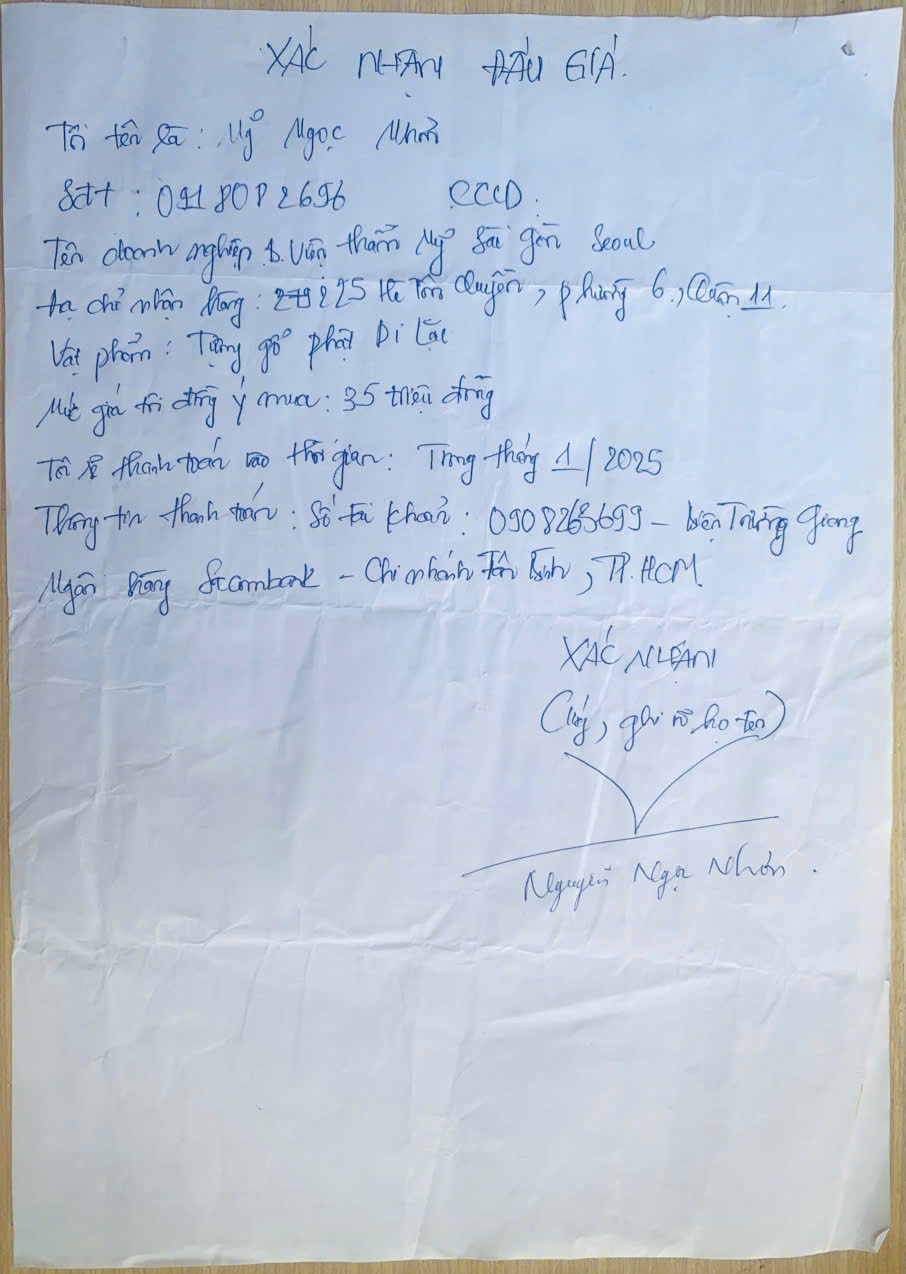 XÁC NHẬN ĐẤU GIÁ.
Tôi tên là: Ngọc Nhơn
Sđt: 0918082696 CCCD.
Tên doanh nghiệp: B. Viện thẩm Mỹ Sài Gòn Seoul
địa chỉ nhận hàng: 225 Hà Tôn Quyền, phường 6, Quận 11.
Vật phẩm: Tượng gỗ phật Di Lặc
Mức giá tôi đồng ý mua: 35 triệu đồng
Tôi sẽ thanh toán vào thời gian: Trong tháng 1/2025
Thông tin thanh toán: Số tài khoản: 0908263699 - Trường Giang
Ngân hàng - Chi nhánh Tân Bình, TP. HCM
XÁC NHẬN
(Ký, ghi rõ họ tên)
Nguyễn Ngọc Nhơn.